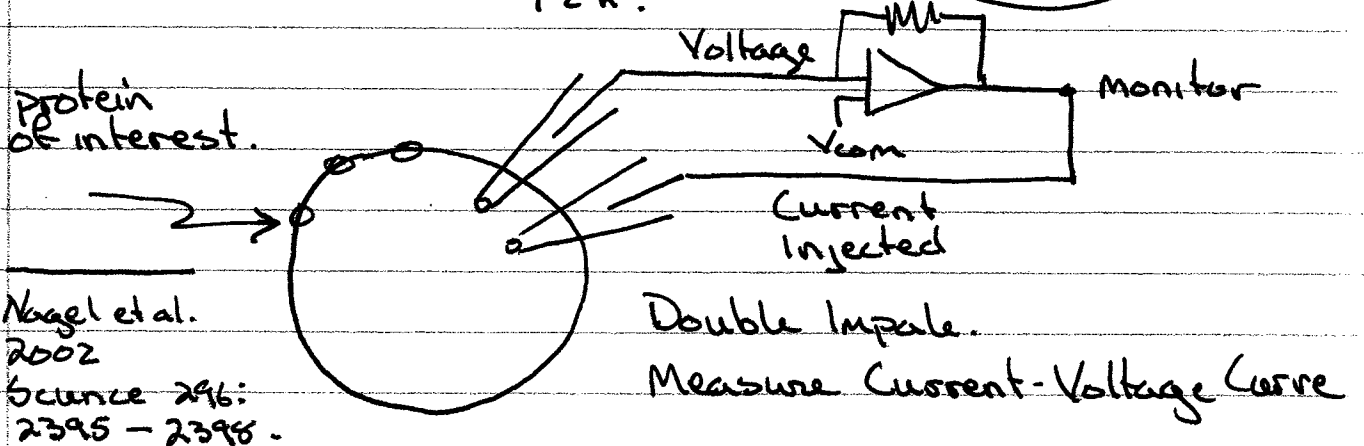 Voltage
monitor
protein
of interest.
Vcom
Current
Injected
Nagel et al.
2002
Science 296:
2395 - 2398.
Double Impale.
Measure Current-Voltage Curve